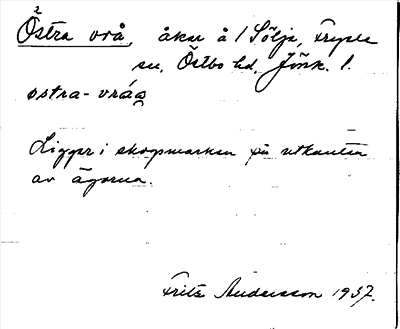 2
Östra vrå, åker å 1 Sölje, Fryele
sn, Östbo hd, Jönk. l.
østra-vráa
Ligger i skogsmarken på utkanten
av ägorna.
Fritz Andersson 1937.